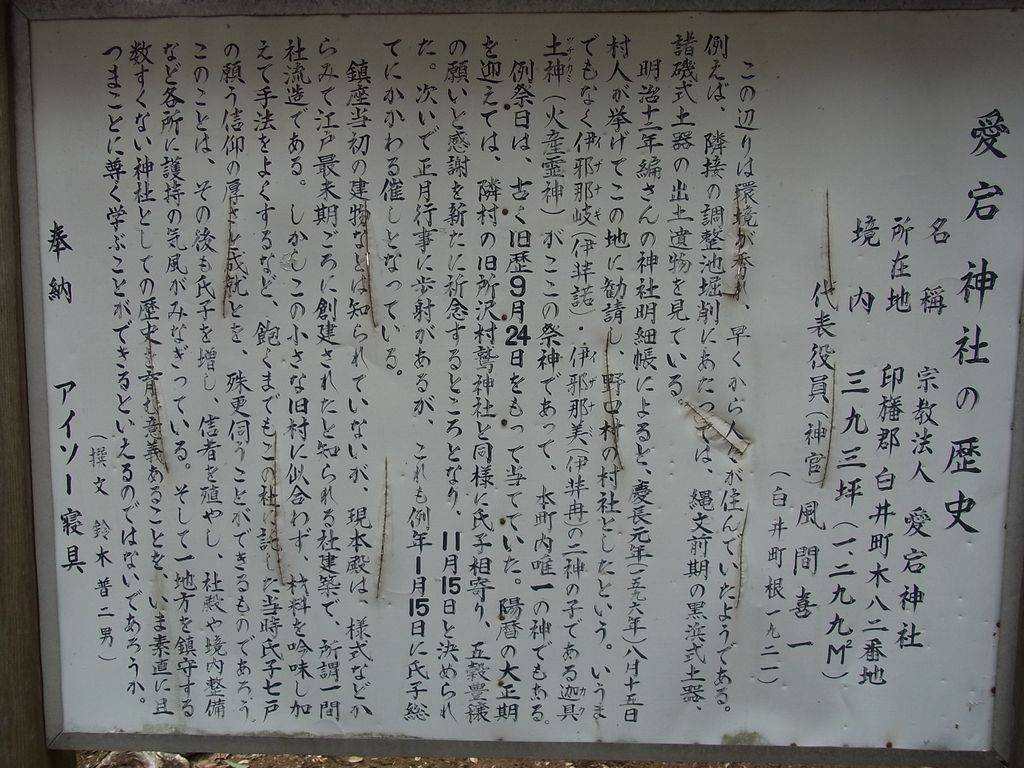 愛宕神社の歴史
名稱 宗教法人 愛宕神社
所在地 印旛郡白井町木八二番地
境内 三九三坪(一、二九九M²)
代表役員(神官)風間喜一
(白井町根一九二一)
この辺りは環境が秀れ、早くから人々が住んでいたようである。
例えば、隣接の調整池堀削にあたっては、縄文前期の黒浜式土器、
諸磯式土器の出土遺物を見ている。
明治十二年編さんの神社明細帳によると、慶長元年(一五九六年)八月十五日
村人が挙げてこの地に勧請し、野口村の村社としたという。いうま
でもなく伊邪那岐(伊弉諾)・伊邪那美(伊弉冉の二神の子である迦具
土神(火産霊神)がここの祭神であって、本町内唯一の神でもある。
例祭日は、古く旧歴9月24日をもって当てていた。陽暦の大正期
を迎えては、隣村の旧所沢村鷲神社と同様に氏子相寄り、五穀豊穣
の願いと感謝を新たに祈念するところとなり、11月15日と決められ
た。次いで正月行事に歩射があるが、これも例年1月15日に氏子総
てにかかわる催しとなっている。
鎮座当初の建物などは知られていないが、現本殿は、様式などか
らみて江戸最末期ごろに創建されたと知られる社建築で、所謂一間
社流造である。しかもこの小さな旧村に似合わず、材料を吟味し加
えて手法をよくするなど、飽くまでもこの社に託した当時氏子七戸
の願う信仰の厚さと成就とを、殊更伺うことができるものであろう。
このことは、その後も氏子を増し、信者を殖やし、社殿や境内整備
など各所に護持の気風がみなぎっている。そして一地方を鎮守する
数すくない神社としての歴史を育む意義あることを、いま素直に且
つまことに尊く学ぶことができるといえるのではないであろうか。
(撰文 鈴木普二男)
奉納 アイソー寝具